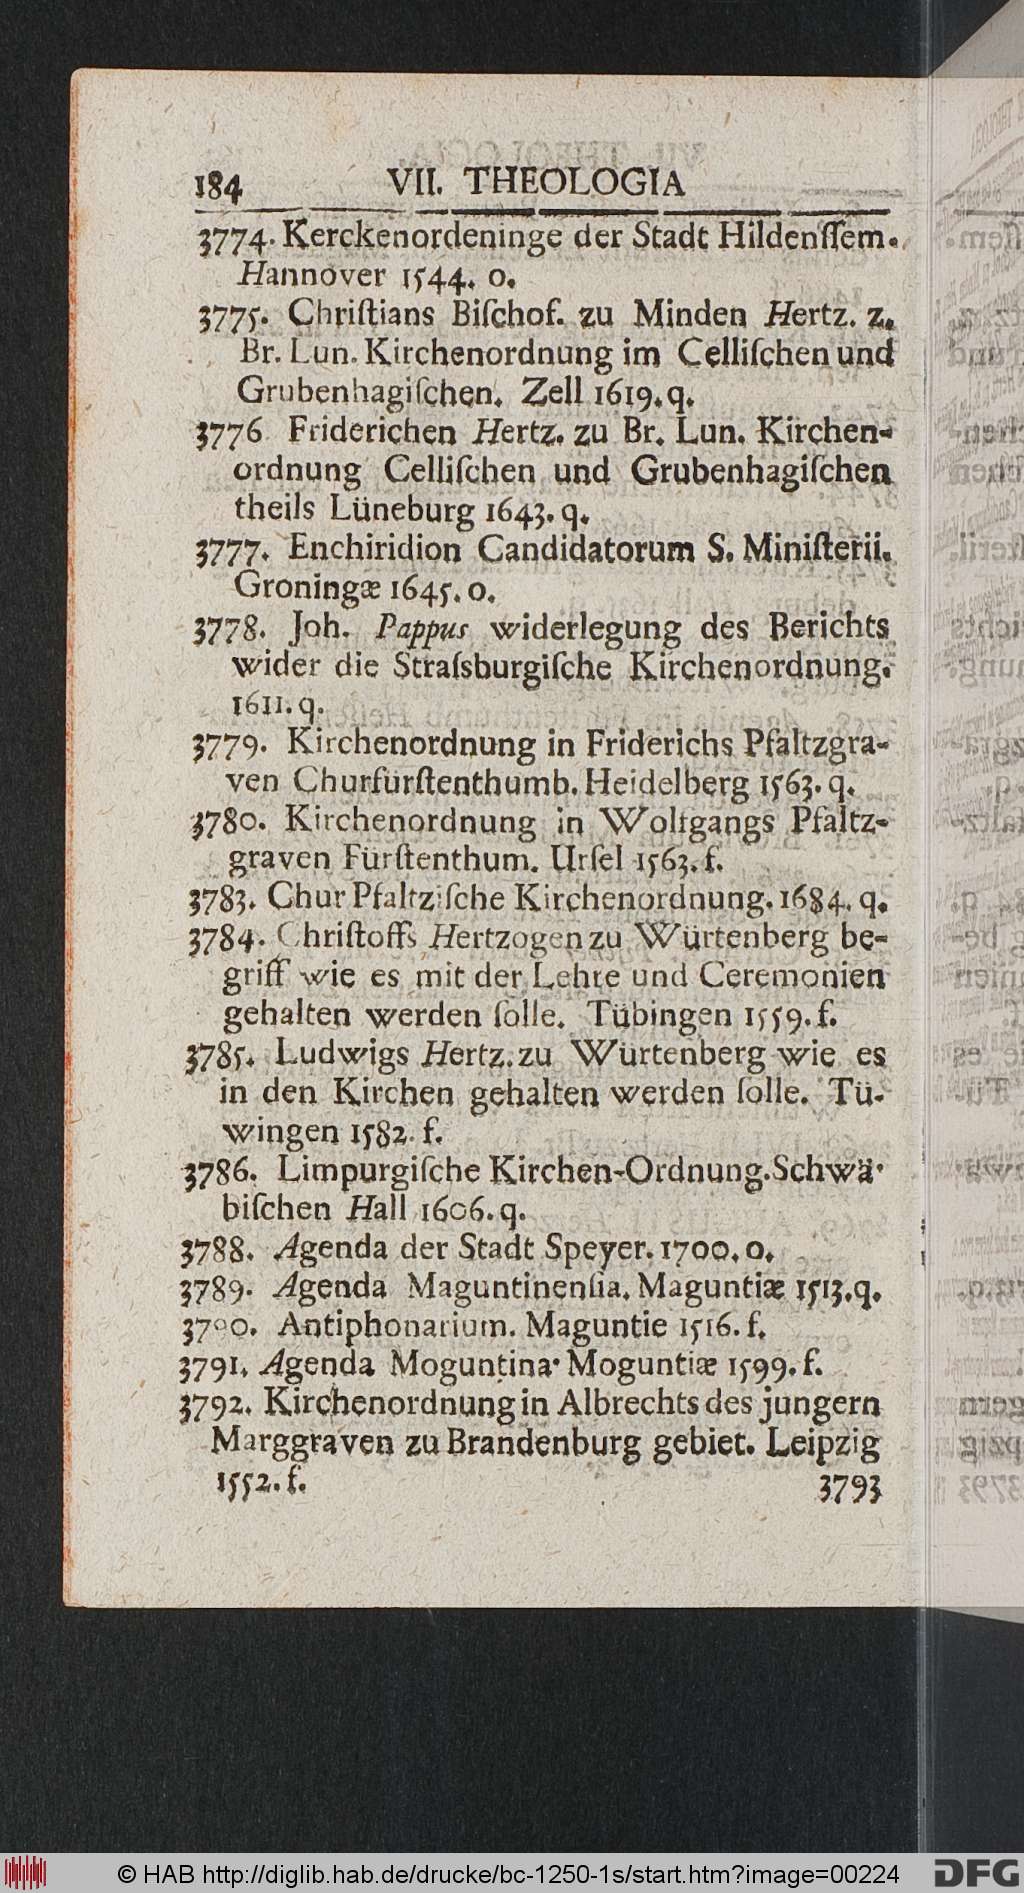 184 VII. THEOLOGIA
3774. Kerckenordeninge der Stadt Hildenſſem.
Hannover 1544. o.
3775. Chriſtians Biſchof. zu Minden Hertz. z.
Br. Lun. Kirchenordnung im Celliſchen und
Grubenhagiſchen. Zell 1619. q.
3776 Friderichen Hertz. zu Br. Lun. Kirchen-
ordnung Celliſchen und Grubenhagiſchen
theils Lüneburg 1643. q.
3777. Enchiridion Candidatorum S. Miniſterii.
Groningæ 1645. o.
3778. Joh. Pappus widerlegung des Berichts
wider die Straſsburgiſche Kirchenordnung.
1611. q.
3779. Kirchenordnung in Friderichs Pfaltzgra-
ven Churfurſtenthumb. Heidelberg 1563. q.
3780. Kirchenordnung in Wolfgangs Pfaltz-
graven Fürſtenthum. Urſel 1563. f.
3783. Chur Pfaltziſche Kirchenordnung. 1684. q.
3784. Chriſtoffs Hertzogen zu Würtenberg be-
griff wie es mit der Lehre und Ceremonien
gehalten werden ſolle. Tübingen 1559. f.
3785. Ludwigs Hertz. zu Würtenberg wie es
in den Kirchen gehalten werden ſolle. Tü-
wingen 1582. f.
3786. Limpurgiſche Kirchen-Ordnung. Schwä-
biſchen Hall 1606. q.
3788. Agenda der Stadt Speyer. 1700. o.
3789. Agenda Maguntinenſia. Maguntiæ 1513. q.
3790. Antiphonarium. Maguntie 1516. f.
3791. Agenda Moguntina. Moguntiæ 1599. f.
3792. Kirchenordnung in Albrechts des jungern
Marggraven zu Brandenburg gebiet. Leipzig
1552. f. 3793
© HAB http://diglib.hab.de/drucke/bc-1250-1s/start.htm?image=00224 DFG